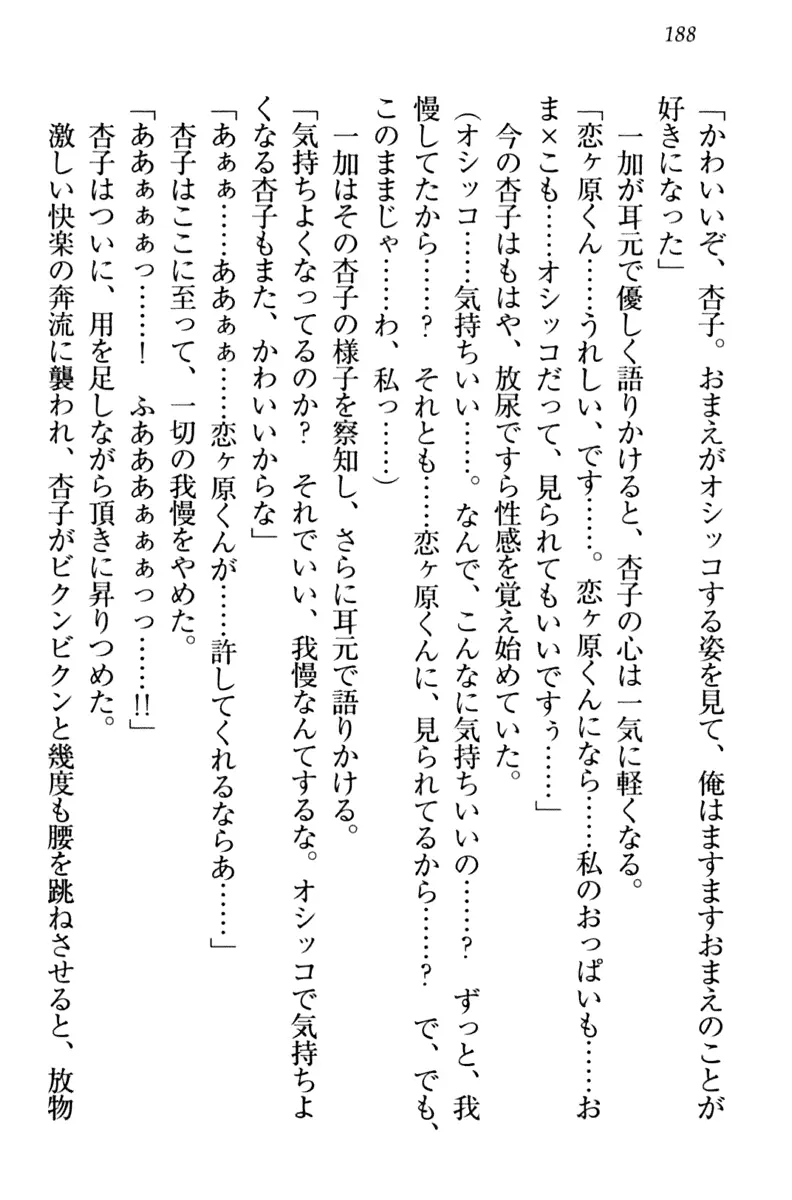 188
「かわいいぞ、杏子。おまえがオシッコする姿を見て、俺はますますおまえのことが
好きになった」
一加が耳元で優しく語りかけると、杏子の心は一気に軽くなる。
「恋ヶ原くん……うれしい、です……。恋ヶ原くんになら……私のおっぱいも……お
ま×こも……オシッコだって、見られてもいいですぅ……」
今の杏子はもはや、放尿ですら性感を覚え始めていた。
（オシッコ……気持ちいい……。なんで、こんなに気持ちいいの……？　ずっと、我
慢してたから……？　それとも……恋ヶ原くんに、見られてるから……？　で、でも、
このままじゃ……わ、私っ……）
一加はその杏子の様子を察知し、さらに耳元で語りかける。
「気持ちよくなってるのか？　それでいい、我慢なんてするな。オシッコで気持ちよ
くなる杏子もまた、かわいいからな」
「あぁぁ……ああぁぁ……恋ヶ原くんが……許してくれるならあ……」
杏子はここに至って、一切の我慢をやめた。
「ああぁぁぁっ……！　ふあああぁぁぁっっ……!!」
杏子はついに、用を足しながら頂きに昇りつめた。
激しい快楽の奔流に襲われ、杏子がビクンビクンと幾度も腰を跳ねさせると、放物